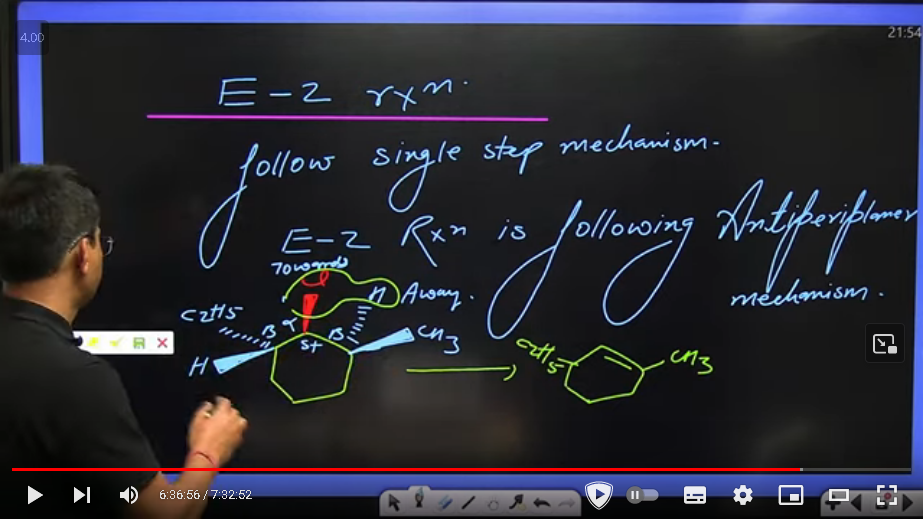 4.00
21:54
E-2 rxn.
follow single step mechanism.
E-2 Rxn is following Antiperiplaner
mechanism.
Towards
Cl
H Away.
C2H5
B α B
CH3
δ+
H
C2H5
CH3
6:36:56 / 7:32:52